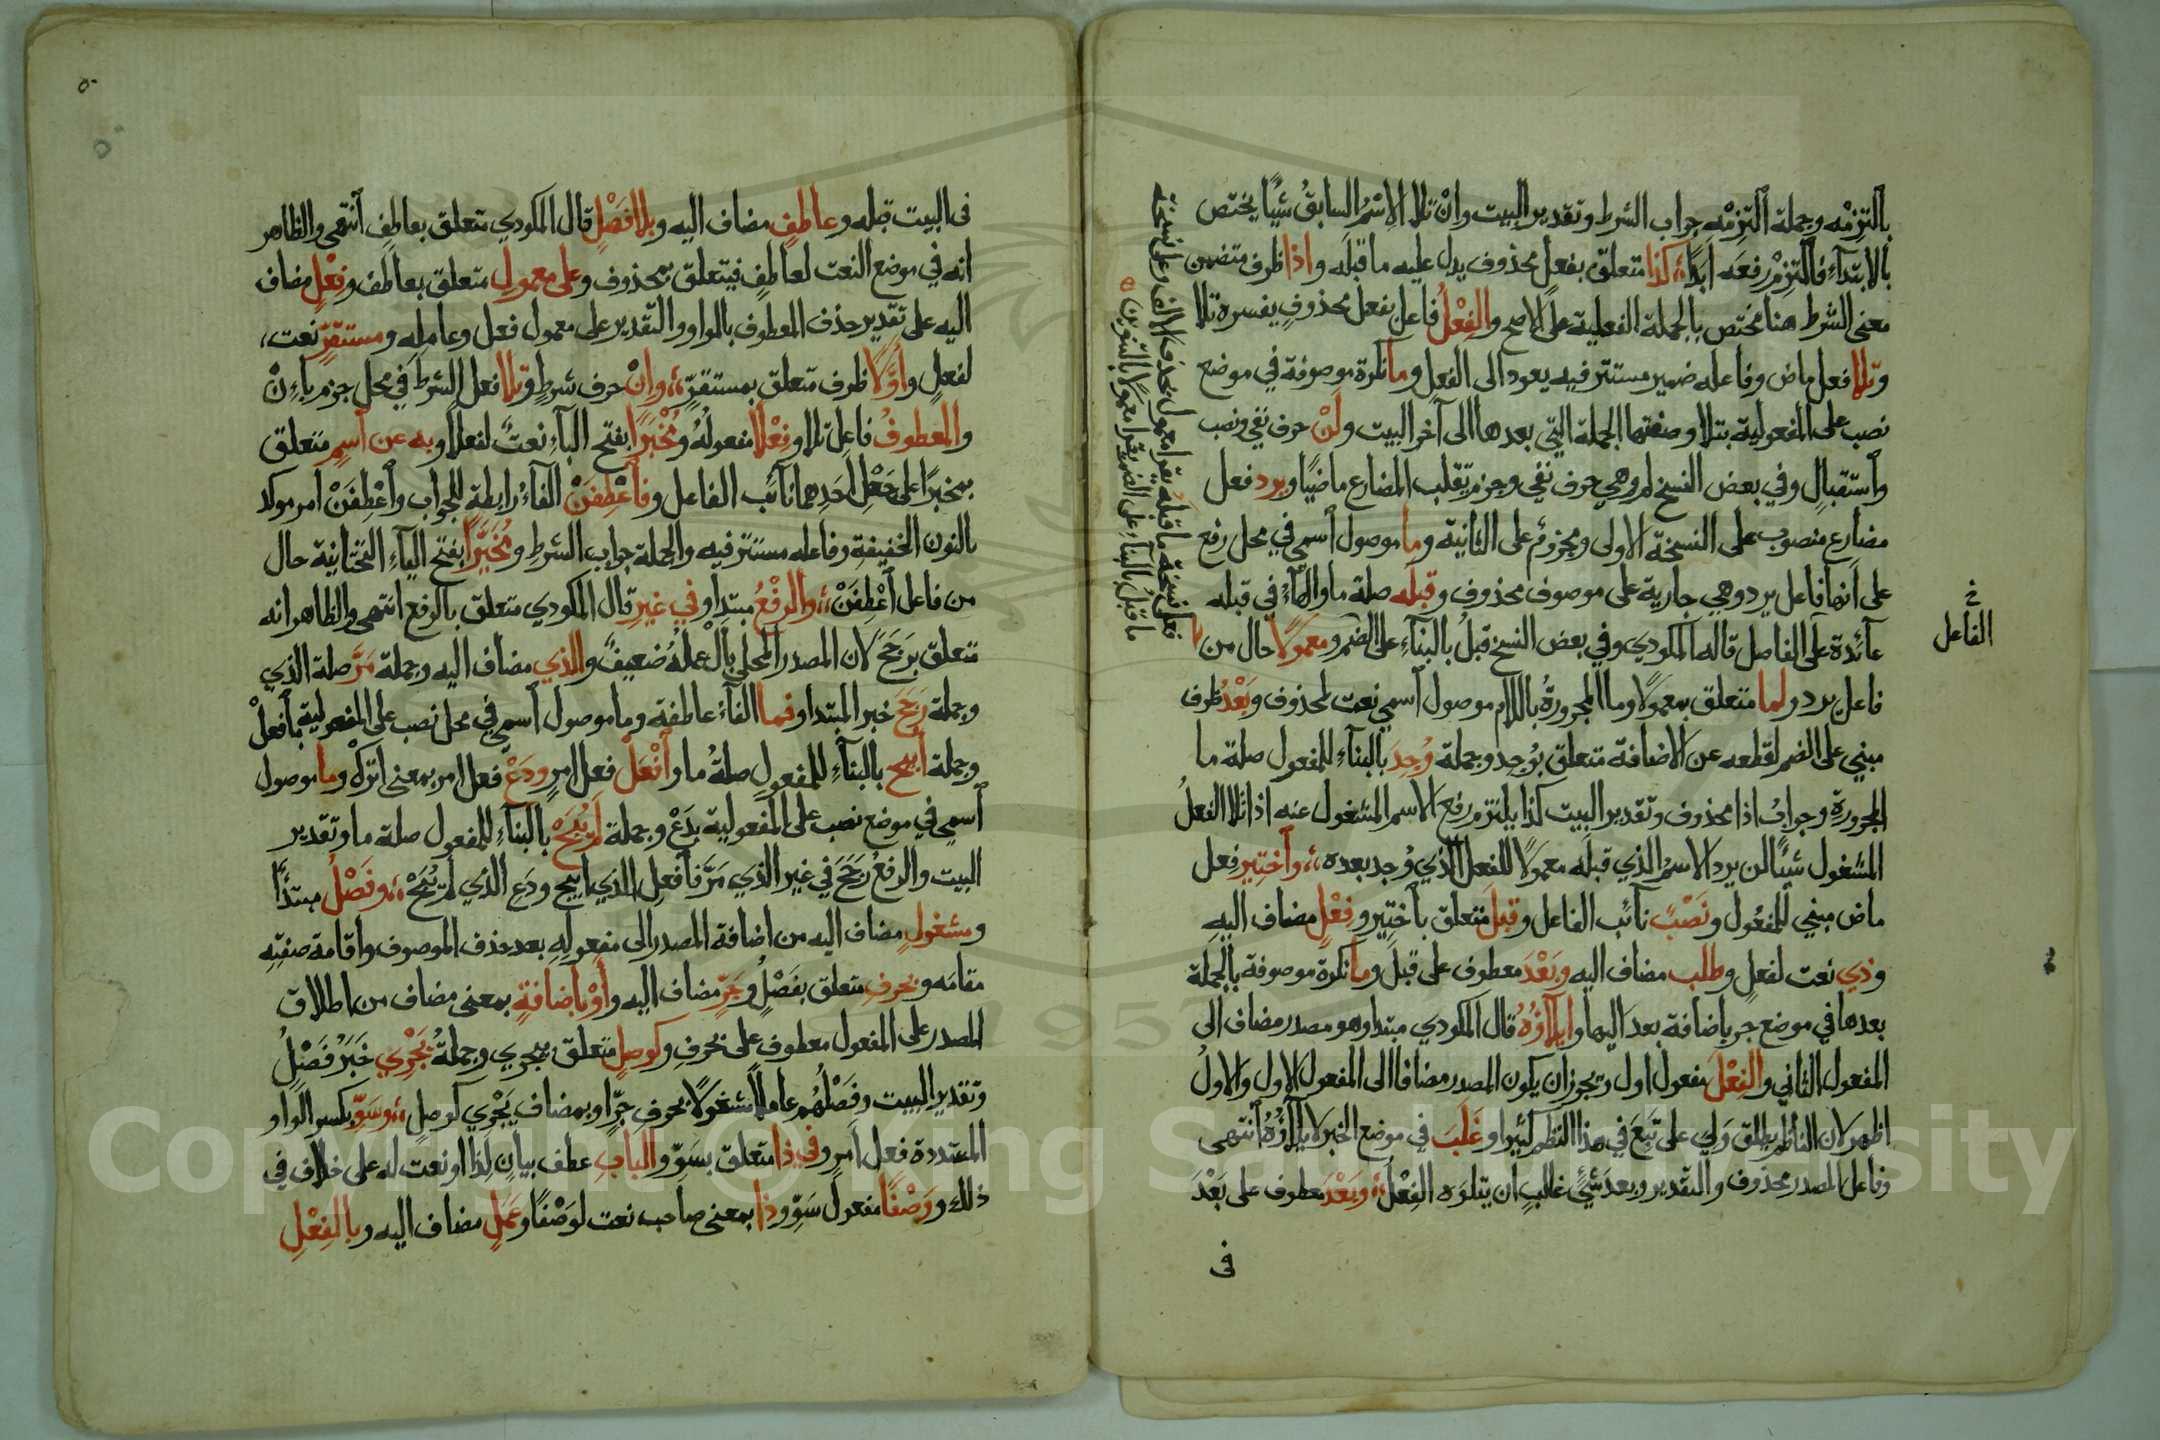 بالتزمْه وجملة ٱلتزمْه جواب الشرط وتقدير البيت وإنْ تلا الاسْمُ السابقُ شيأً يختص
بالابتدآءِ فالتزمْ رفعَه ابدًا كذا متعلق بفعل محذوف يدل عليه ما قبله واذا ظرف متضمن
معنى الشرط هنا مختص بالجملة الفعلية على الاصح والفِعْلُ فاعل بفعل محذوفٍ يفسره تلا
وتلا فعل ماض وفاعله ضمير مستتر فيه يعود الى الفعل وما نكرة موصوفة في موضع
نصب على المفعولية بتلا وصفتها الجملة التي بعدها الى آخر البيت ولَنْ حرف نفي ونصب
وٱستقبالٍ وفي بعض النسخ لم وهي حرف نفي وجزم يقلب المضارع ماضيًا ويرد فعل
مضارع منصوب على النسخة الاولى ومجزوم على الثانية وما موصول ٱسمي في محل رفع
على انها فاعل يرد وهي جارية على موصوف محذوف وقبله صلة ما والهآء في قبله
عآئدة على الفاصل قاله المكودي وفي بعض النسخ قبلُ بالبنآءِ على الضم ومعمولًا حال من
فاعل يرد ولما متعلق بمعمولًا وما المجرورةُ باللام موصول ٱسمي نعت لمحذوف وبَعْدُ ظرف
مبني على الضم لقطعه عن الاضافة متعلق بوُجد وجملة وُجِدَ بالبنآءِ للمفعول صلة ما
المجرورة وجوابُ اذا محذوف وتقدير البيت كذا يلتزم رفع الاسم المشغول عنه اذا تلا الفعلُ
المشغول شيأً لن يرد الاسمُ الذي قبله معمولًا للفعل الذي وُجد بعده وٱختير فعل
ماض مبني للمفعول ونَصْبٌ نآئب الفاعل وقبلَ متعلق بٱختير وفِعْلٍ مضاف اليه
وذي نعت لفعلٍ وطلب مضاف اليه وبَعْدَ معطوف على قبلَ وما نكرة موصوفة بالجملة
بعدها في موضع جر باضافة بعد اليها وايلآؤهُ قال المكودي مبتدا وهو مصدر مضاف الى
المفعول الثاني والفِعْلَ مفعول اول ويجوز ان يكون المصدر مضافا الى المفعول الاول والاولُ
اظهر لان الناظم يطلق وَلِيَ على تَبِعَ في هذا النظم كثيرا وغَلَبَ في موضع الخبر لايلآؤهُ ٱنتهى
وفاعل المصدر محذوف والتقدير وبعدَ شيٍ غالبٍ ان يتلوَه الفِعْلُ وبَعْدَ معطوف على بَعْدَ
فى
خ
الفاعل
في البيت قبله وعاطفٍ مضاف اليه وبلا فَصْلٍ قال المكودي متعلق بعاطفٍ ٱنتهى والظاهر
انه في موضع النعت لعاطفٍ فيتعلق بمحذوف وعلى معمولِ متعلق بعاطف وفِعْلٍ مضاف
اليه على تقدير حذف المعطوف بالواو والتقدير على معمول فعل وعامله ومستقرٍّ نعت
لفعلٍ وأوَّلًا ظرف متعلق بمستقرٍّ وانْ حرف شرطٍ وتلا فعل الشرط في محل جزم باِنْ
والمعطوفُ فاعل تلا وفِعْلًا مفعولُهُ ومُخْبَرًا بفتح البآءِ نعتٌ لفعلًا وبه عن ٱسمٍ متعلق
بمخبرًا على جَعْلِ احَدِهما نآئب الفاعل وفٱعْطِفَنْ الفآءُ رابطة للجواب وٱعْطِفَنْ امر موكد
بالنون الخفيفة وفاعله مستتر فيه والجملة جواب الشرط ومُخَيَّرًا بفتح اليآءِ التحتانية حال
من فاعل ٱعْطِفَنْ والرفعُ مبتدا وفي غيرِ قال المكودي متعلق بالرفع انتهى والظاهر انه
متعلق برَجَحَ لان المصدر المحلى بالْ عملُهُ ضعيفٌ والذي مضاف اليه وجملة مَرَّ صلة الذي
وجملة رَجَحَ خبر المبتدا وفما الفآءُ عاطفة وما موصول ٱسمي في محل نصب على المفعولية بٱفعلْ
وجملة أُبِيحَ بالبنآءِ للمفعول صلةُ ما وٱفْعَلْ فعل امرٍ ودَعْ فعل امر بمعنى اتركْ وما موصول
ٱسمي في موضع نصب على المفعولية بدَعْ وجملة لَمْ يُبَحْ بالبنآءِ للمفعول صلة ما وتقدير
البيت والرفعُ رَجَحَ في غير الذي مَرَّ فٱفعلِ الذي ابيح ودَعِ الذي لم يُبَحْ وفَصْلُ مبتدأٌ
ومشغولٍ مضاف اليه من اضافة المصدر الى مفعولِهِ بعد حذف الموصوف واقامة صفتِه
مقامَه وبحرفِ متعلق بفَصْلُ وجَرٍّ مضاف اليه وأوْ بٱضافةٍ بمعنى مضاف من اطلاق
المصدر على المفعول معطوف على بحرفِ وكوصلٍ متعلق بيجري وجملةُ يَجْرِي خَبَرُ فَصْلُ
وتقدير البيت وفَصْلُهم عاملًا مشغولًا بحرف جرٍّ او بمضاف يَجْري كوصلٍ وسَوِّ بكسر الواو
المشددة فعل امرٍ وفي ذا متعلق بسَوِّ والبابِ عطف بيانٍ لِذَا او نعت له على خلافٍ في
ذلك ووَصْفًا مفعول سَوِّ وذا بمعنى صاحب نعت لوَصْفًا وعَمَلٍ مضاف اليه وبالفِعْلِ
Copyright © King Saud University
1957